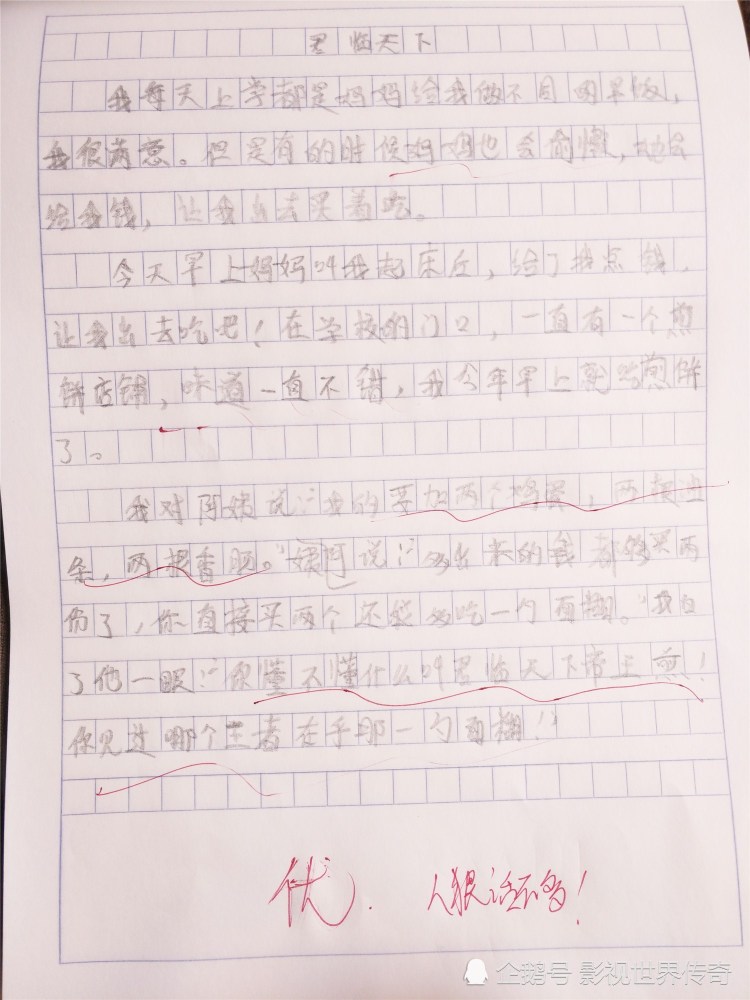 君临天下
我每天上学都是妈妈给我做不同的早饭，
我很满意。但是有的时候妈妈也会偷懒，就会
给我钱，让我出去买着吃。
今天早上妈妈叫我起床后，给了我点钱，
让我出去吃吧！在学校的门口，一直有一个煎
饼店铺，味道一直不错，我今年早上就吃煎饼
了。
我对阿姨说：“我的要加两个鸡蛋，两根油
条，两根香肠。”姨阿说：“多出来的钱都够买两
份了，你直接买两个还能多吃一勺面糊。”我白
了他一眼：“你懂不懂什么叫君临天下帝王煎！
你见过哪个王者在乎那一勺面糊！”
优．人狠话不多！
企鹅号 影视世界传奇